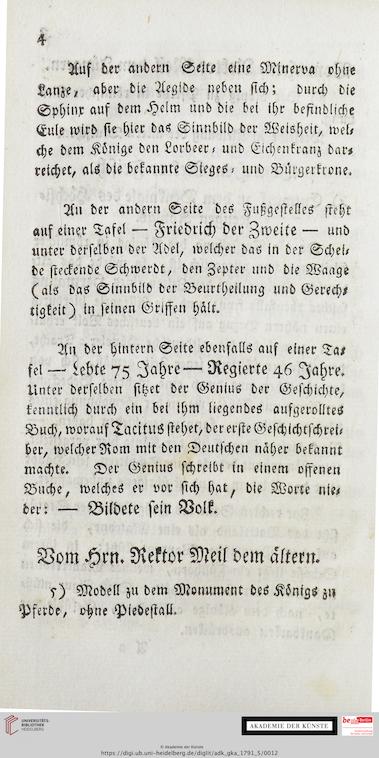 4
Auf der andern Seite eine Minerva ohne
Lanze, aber die Aegide neben sich; durch die
Sphinx auf dem Helm und die bei ihr befindliche
Eule wird sie hier das Sinnbild der Weisheit, wel-
che dem Könige den Lorbeer- und Eichenkranz dar-
reichet, als die bekannte Sieges- und Bürgerkrone.
An der andern Seite des Fußgestelles steht
auf einer Tafel — Friedrich der Zweite — und
unter derselben der Adel, welcher das in der Schei-
de steckende Schwerdt, den Zepter und die Waage
(als das Sinnbild der Beurtheilung und Gerech-
tigkeit) in seinen Griffen hält.
An der hintern Seite ebenfalls auf einer Ta-
fel — Lebte 75 Jahre — Regierte 46 Jahre.
Unter derselben sitzet der Genius der Geschichte,
kenntlich durch ein bei ihm liegendes aufgerolltes
Buch, worauf Tacitus stehet, der erste Geschichtschrei-
ber, welcher Rom mit den Deutschen näher bekannt
machte. Der Genius schreibt in einem offenen
Buche, welches er vor sich hat, die Worte nie-
der: — Bildete sein Volk.
Vom Hrn. Rektor Meil dem ältern.
5) Modell zu dem Monument des Königs zu
Pferde, ohne Piedestall.
UNIVERSITÄTS-
BIBLIOTHEK
HEIDELBERG
AKADEMIE DER KÜNSTE
https://digi.ub.uni-heidelberg.de/diglit/adk_gka_1791_5/0012
© Akademie der Künste